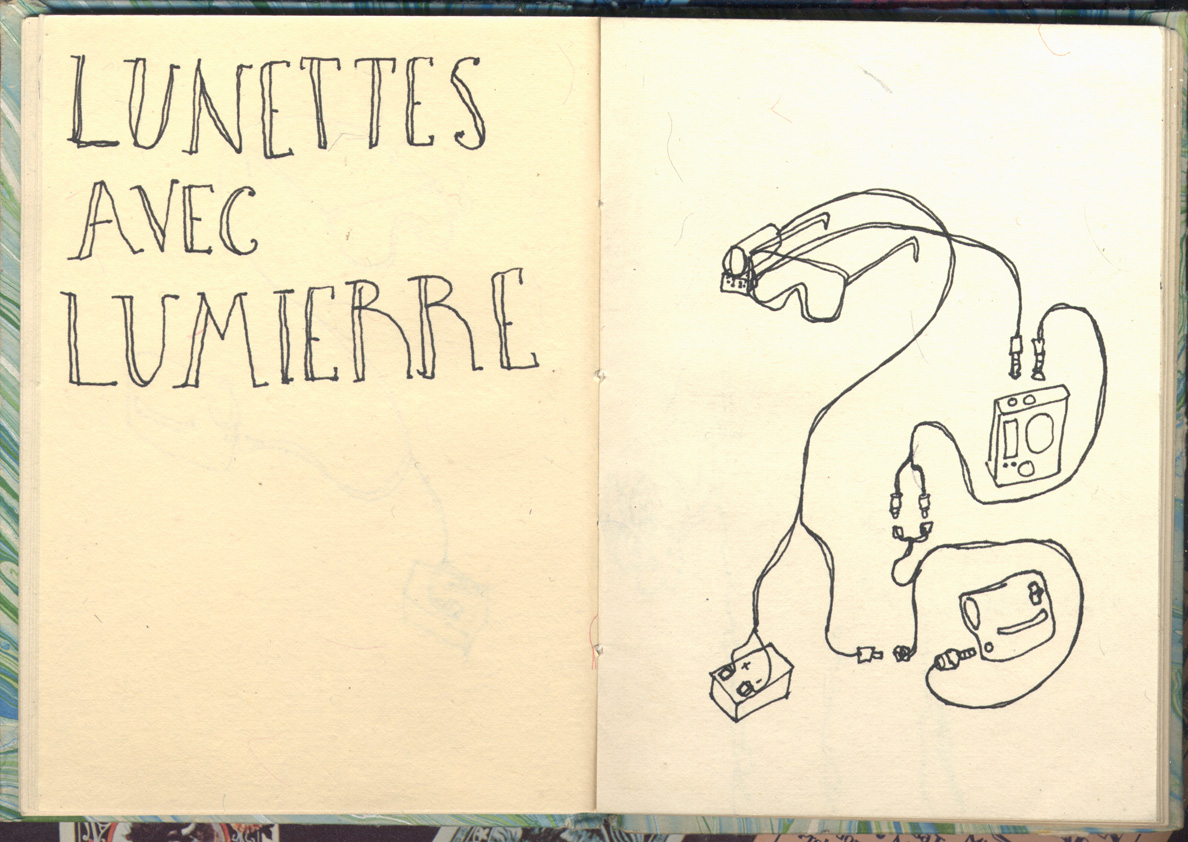 LUNETTES
AVEC
LUMIERRE
+
-